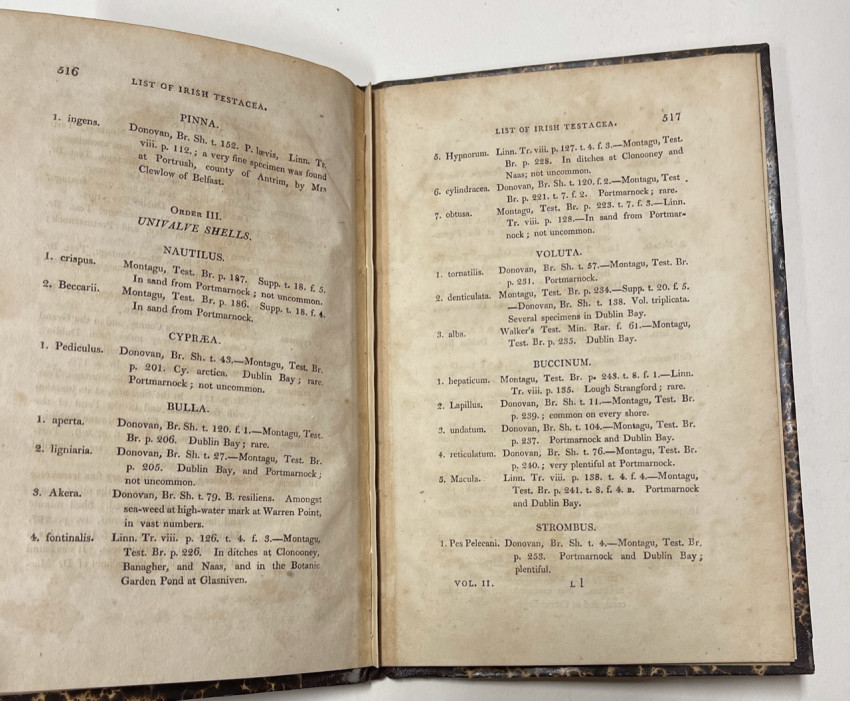 516
LIST OF IRISH TESTACEA.
PINNA.
1. ingens. Donovan, Br. Sh. t. 152. P. lœvis, Linn. Tr.
viii. p. 112.; a very fine specimen was found
at Portrush, county of Antrim, by Mrs
Clewlow of Belfast.
ORDER III.
UNIVALVE SHELLS.
NAUTILUS.
1. crispus. Montagu, Test. Br. p. 187. Supp. t. 18. f. 5.
In sand from Portmarnock; not uncommon.
2. Beccarii. Montagu, Test. Br, p. 186. Supp. t. 18. f. 4.
In sand from Portmarnock.
CYPRÆA.
1. Pediculus. Donovan, Br. Sh. t. 43.—Montagu, Test. Br.
p. 201. Cy. arctica. Dublin Bay; rare.
Portmarnock; not uncommon.
BULLA.
1. aperta. Donovan, Br. Sh. t. 120. f. 1.—Montagu, Test.
Br. p. 206. Dublin Bay; rare.
2. ligniaria. Donovan, Br. Sh. t. 27.—Montagu, Test. Br.
p. 205. Dublin Bay, and Portmarnock;
not uncommon.
3. Akera. Donovan, Br. Sh. t. 79. B. resiliens. Amongst
sea-weed at high-water mark at Warren Point,
in vast numbers.
4. fontinalis. Linn. Tr. viii. p. 126. t. 4. f. 3.—Montagu,
Test. Br. p. 226. In ditches at Clonooney,
Banagher, and Naas, and in the Botanic
Garden Pond at Glasniven.
LIST OF IRISH TESTACEA. 517
5. Hypnorum. Linn. Tr. viii. p. 127. t. 4. f. 3.—Montagu, Test.
Br. p. 228. In ditches at Clonooney and
Naas; not uncommon.
6. cylindracea. Donovan, Br. Sh. t. 120. f. 2.—Montagu, Test.
Br. p. 221. t. 7. f. 2. Portmarnock; rare.
7. obtusa. Montagu, Test. Br. p. 223. t. 7. f. 3.—Linn.
Tr. viii. p. 128.—In sand from Portmar-
nock; not uncommon.
VOLUTA.
1. tornatilis. Donovan, Br. Sh. t. 57.—Montagu, Test. Br.
p. 231. Portmarnock.
2. denticulata. Montagu, Test. Br. p. 234.—Supp. t. 20. f. 5.
—Donovan, Br. Sh. t. 138. Vol. triplicata.
Several specimens in Dublin Bay.
3. alba. Walker's Test. Min. Rar. f. 61.—Montagu,
Test. Br. p. 235. Dublin Bay.
BUCCINUM.
1. hepaticum. Montagu, Test. Br. p. 243. t. 8. f. 1.—Linn.
Tr. viii. p. 135. Lough Strangford; rare.
2. Lapillus. Donovan, Br. Sh. t. 11.—Montagu, Test. Br.
p. 239.; common on every shore.
3. undatum. Donovan, Br. Sh. t. 104.—Montagu, Test. Br.
p. 237. Portmarnock and Dublin Bay.
4. reticulatum. Donovan, Br. Sh. t. 76.—Montagu, Test. Br.
p. 240.; very plentiful at Portmarnock.
5. Macula. Linn. Tr. viii. p. 138. t. 4. f. 4.—Montagu,
Test. Br. p. 241. t. 8. f. 4. B. Portmarnock
and Dublin Bay.
STROMBUS.
1. Pes Pelecani. Donovan, Br. Sh. t. 4.—Montagu, Test. Br.
p. 253. Portmarnock and Dublin Bay;
plentiful.
VOL. II. L l